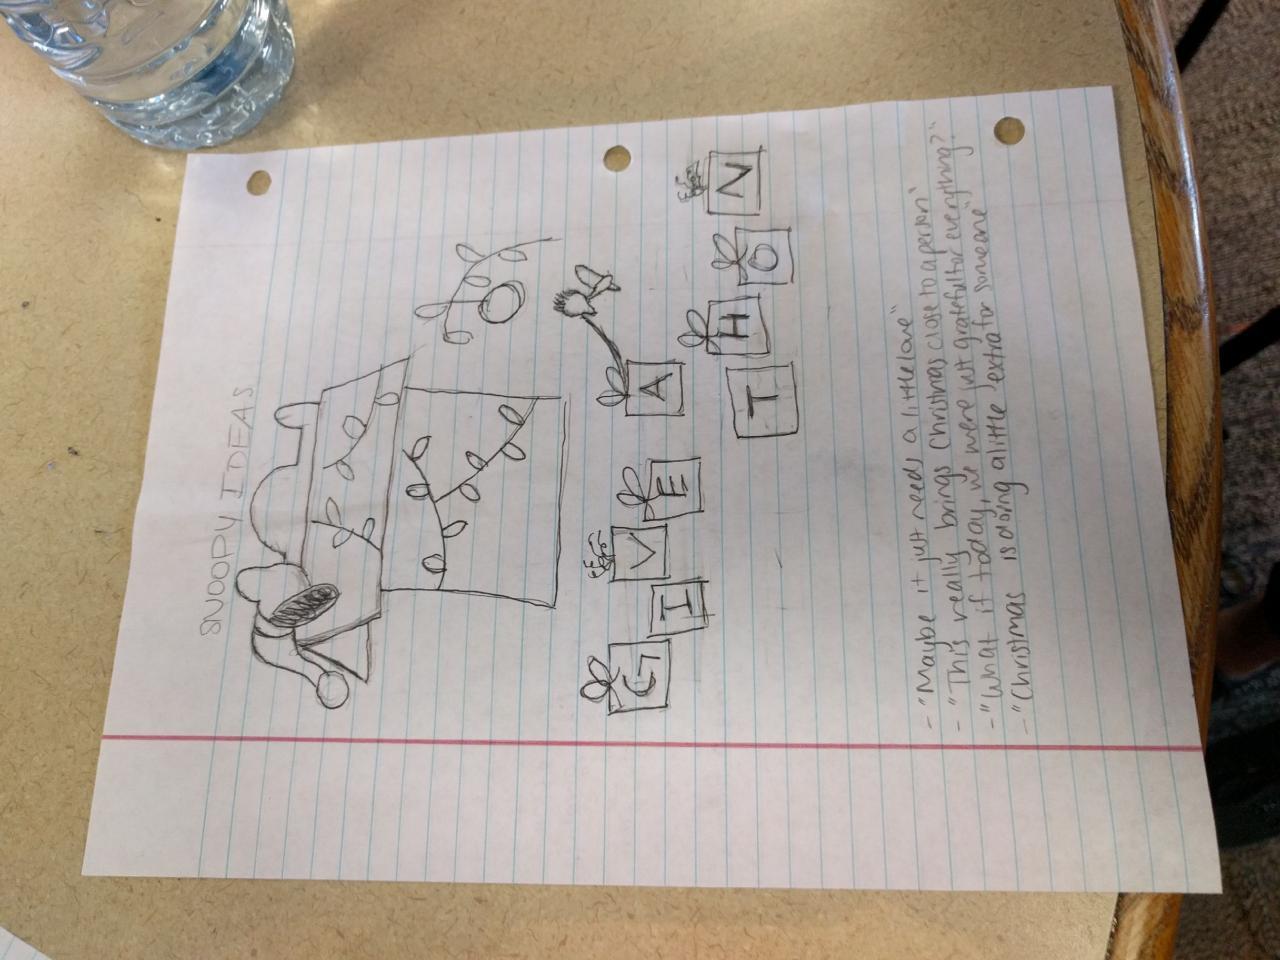 SNOOPY IDEAS
GIVE A
THON
- "Maybe it just needs a little love"
- "This really brings Christmas close to a person"
- "What if today, we were just grateful for everything?"
- "Christmas is doing a little extra for someone"